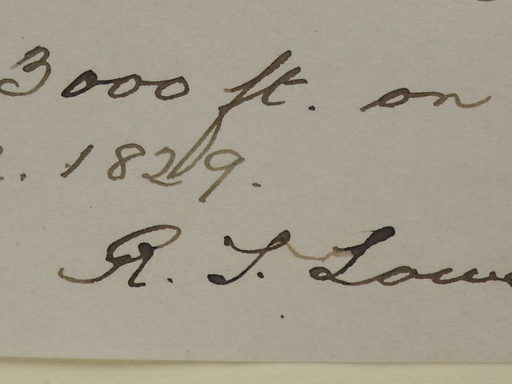 3000 ft. on
. 1829.
R. T. Lowe